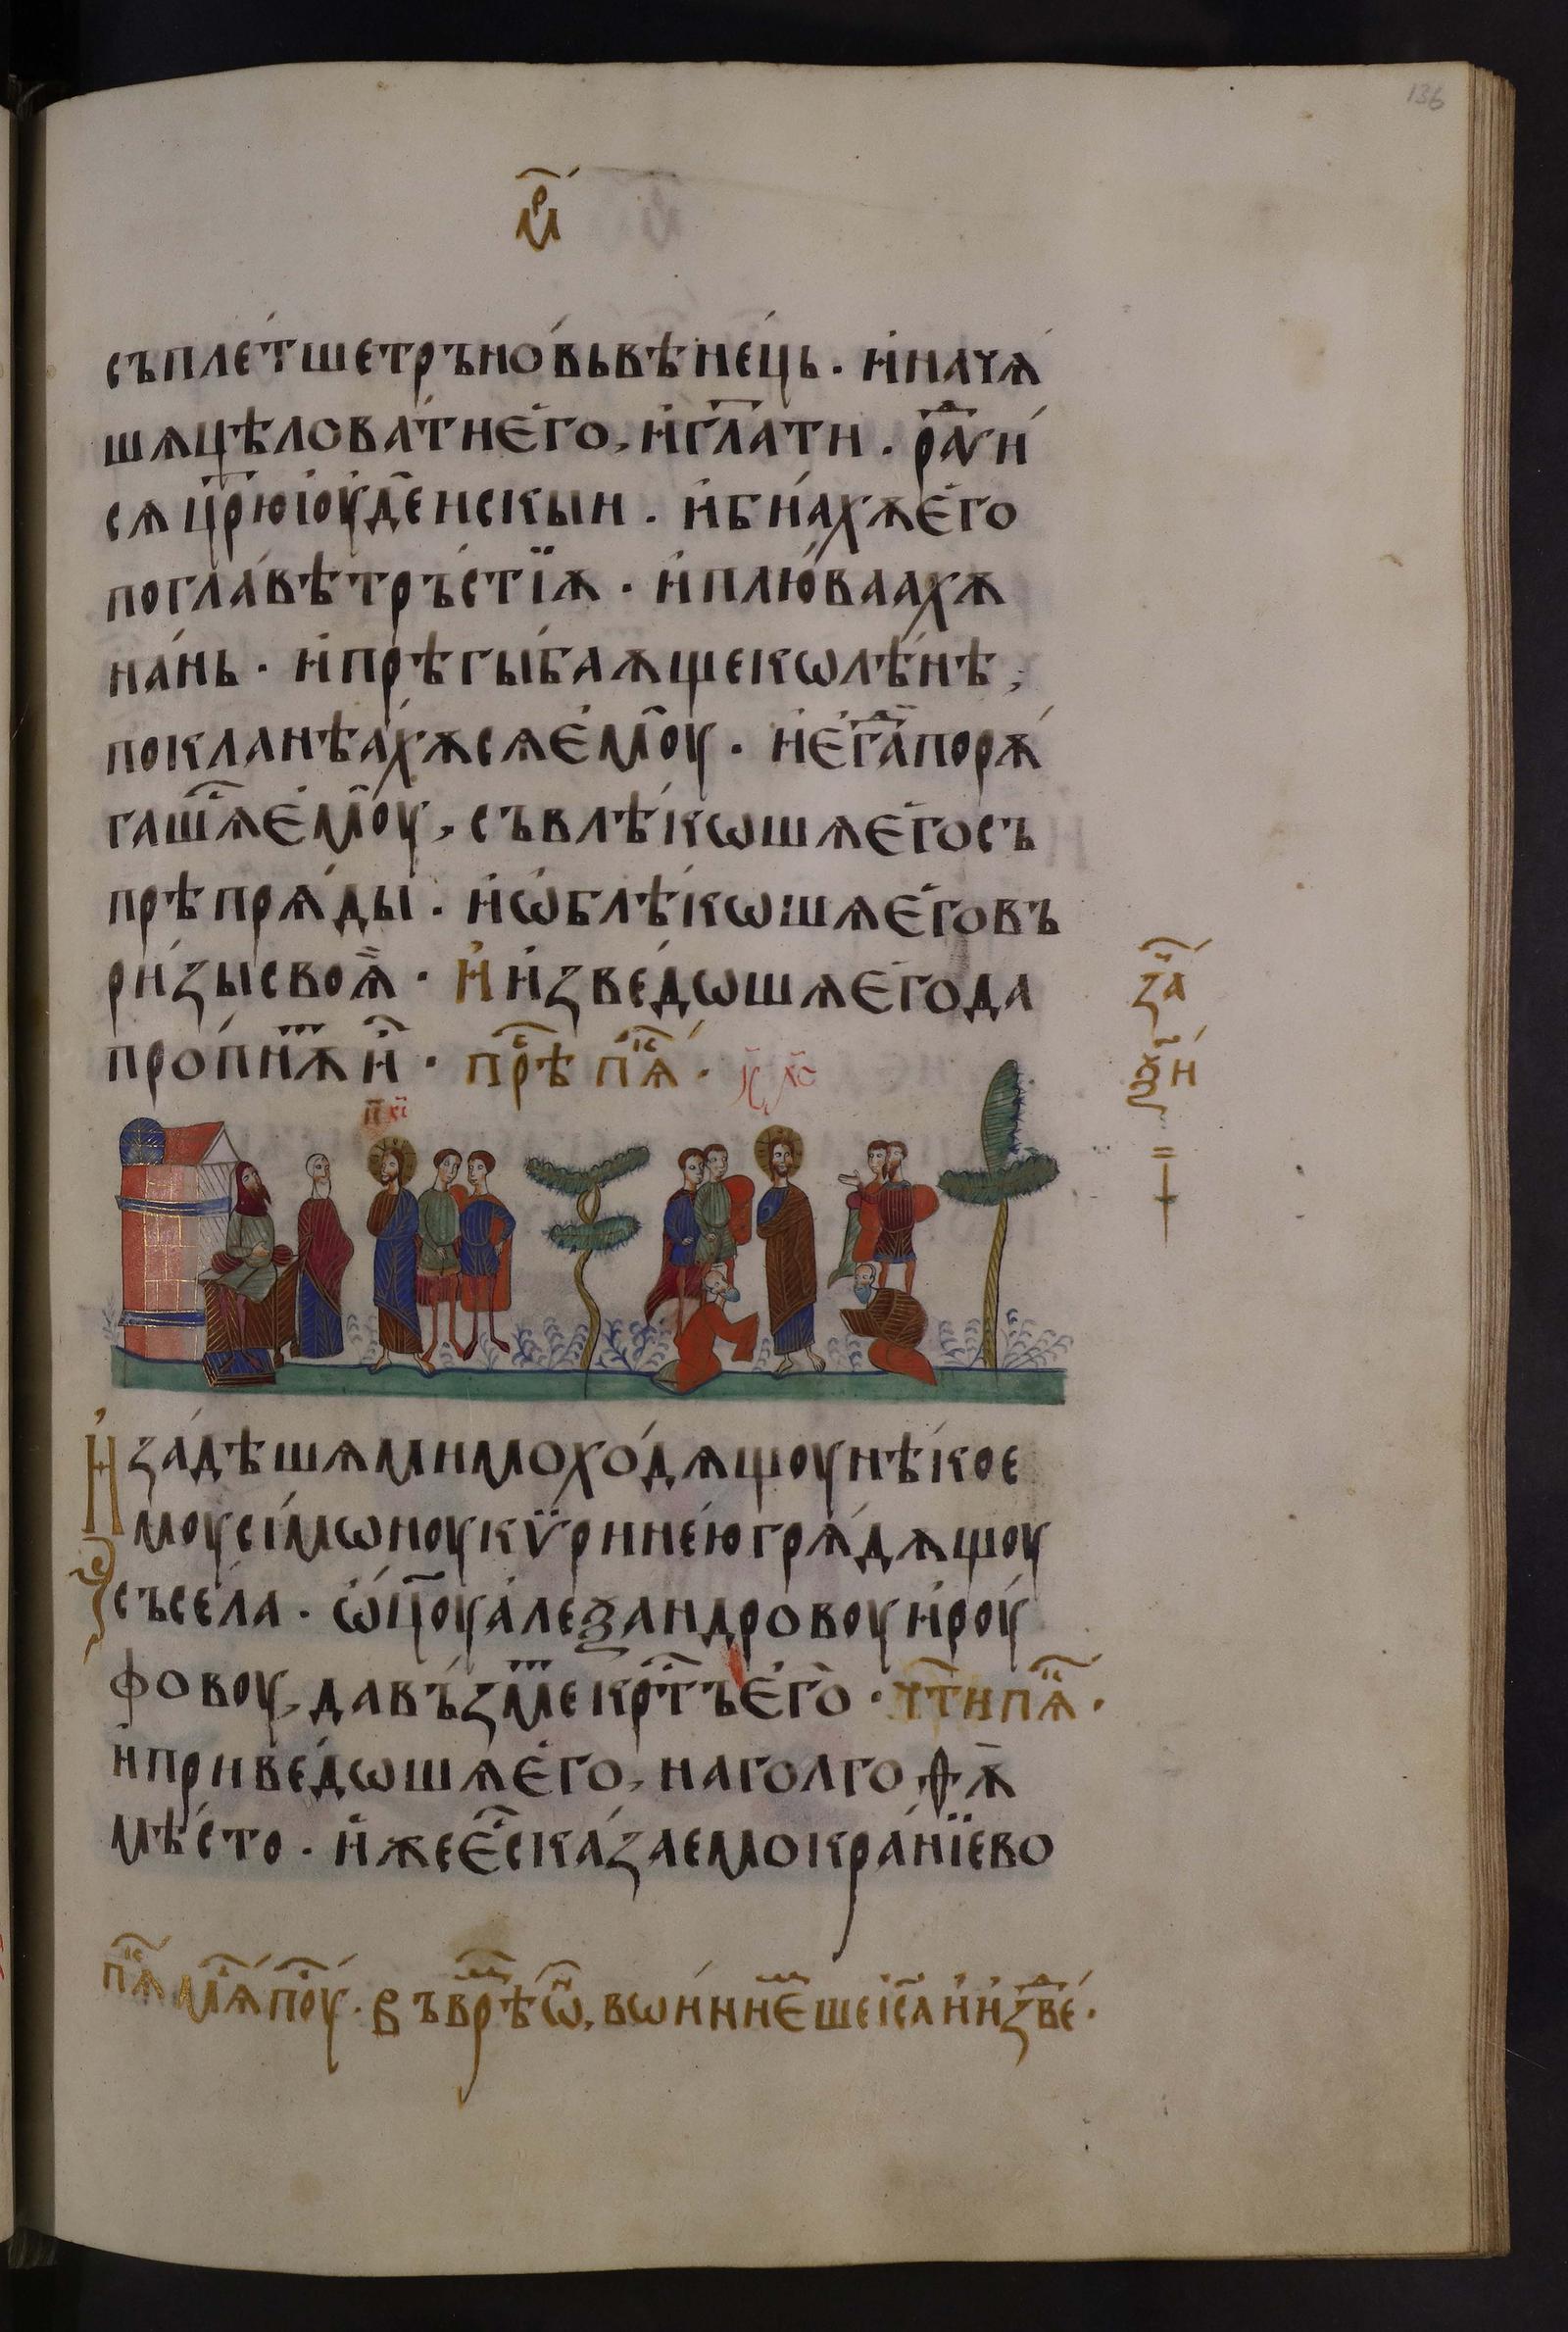 136
мⷬ҇
съпле́тшетръно́вьвѣне́ць · и҆начѧ
шѧцѣлова́тиего̀, и҆гл҃ати · раⷣуи́
сѧцр҃юіоуде́искыи · и҆би́ахѫего
погла́вѣтръ́стїѫ · и҆плю́ваахѫ
на́нь · и҆прѣгыба́ѫщеколѣ́нѣ,
покланѣа́хѫсѧемоу · и҆егⷣапорѫ́
гашѧⷭ҇емоу, съвлѣ́кѡшѧегосъ
прѣпрѧ́ды · и҆ѡ҆блѣ́кѡшѧеговъ
ри́зысвоѫ · И҆и҆зве́дѡшѧегода
пропи́нѫи · прⷭ҇ѣ пⷮѧ ·
за
ѯи
іс҃ хс҃
И҆заде́шѧмимохо́дѧщоунѣ́кое
моусі́мѡноукѷрине́югрѧ́дѫщоу
съсела̀ · ѡ҆ц҃оуале́ѯандровоуи҆роу́
фовоу, давъзмеⷮкрⷭ҇тъего · чⷮтипⷮѧ ·
и҆приве́дѡшѧего, наголгоѳѫ
мѣ́сто · и҆жееⷭ҇ска́заемокра́нїево
пⷮѧ мⷭ҇ѧпоⷭ҇у · Въврⷨѣѡн, вѡ́ининⷨешеіс҃аи҆и҆звеⷣ ·